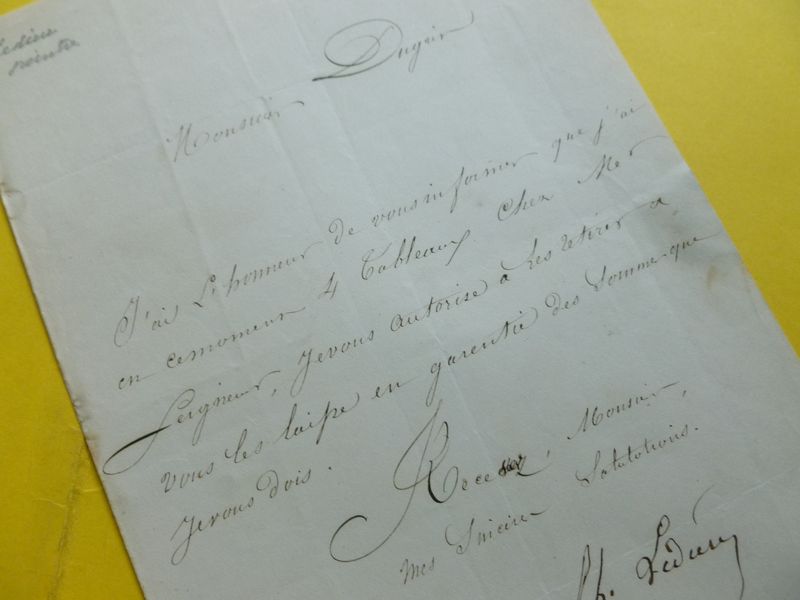 Ledieu
peintre
Monsieur Dugoir
J'ai L'honneur de vous informer que j'ai
en cemoment 4 Tableaux Chez Mer
Seigneur, Jevous autorise a Les retirer a
vous Les laisse en garentie des Somme que
Jevous dois.
Recevez, Monsieur,
mes Sincère Salutations.
Ph. Ledieu